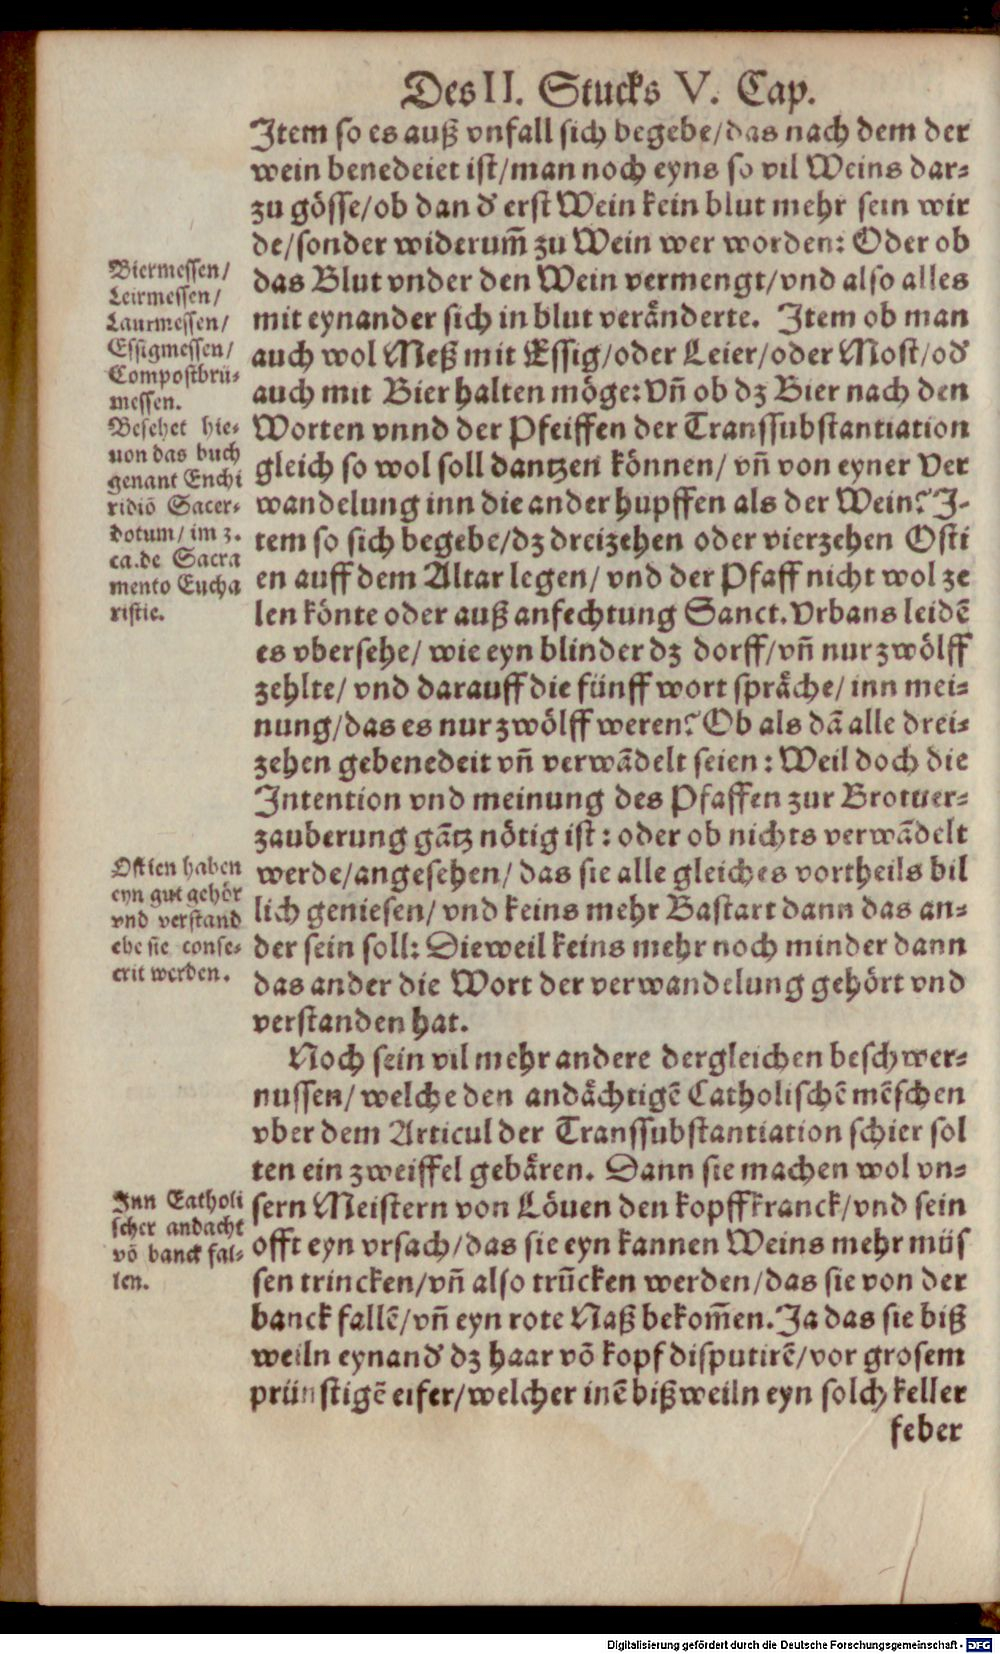 Des II. Stucks V. Cap.
Item so es auß vnfall sich begebe/das nach dem der
wein benedeiet ist/man noch eyns so vil Weins dar-
zu gösse/ob dan dʼ erst Wein kein blut mehr sein wir
de/sonder widerum̃ zu Wein wer worden: Oder ob
das Blut vnder den Wein vermengt/vnd also alles
mit eynander sich in blut veränderte. Item ob man
auch wol Meß mit Essig/oder Leier/oder Most/odʼ
auch mit Bier halten möge: Vñ ob dz Bier nach den
Worten vnnd der Pfeiffen der Transsubstantiation
gleich so wol soll dantzen können/ vñ von eyner Ver
wandelung inn die ander hupffen als der Wein? I-
tem so sich begebe/dz dreizehen oder vierzehen Osti
en auff dem Altar legen/ vnd der Pfaff nicht wol ze
len könte oder auß anfechtung Sanct. Vrbans leidẽ
es vbersehe/ wie eyn blinder dz dorff/vñ nur zwölff
zehlte/ vnd darauff die fünff wort spräche/ inn mei-
nung/das es nur zwölff weren? Ob als dã alle drei-
zehen gebenedeit vñ verwãdelt seien: Weil doch die
Intention vnd meinung des Pfaffen zur Brotuer-
zauberung gãtz nötig ist: oder ob nichts verwãdelt
werde/angesehen/ das sie alle gleiches vortheils bil
lich geniesen/ vnd keins mehr Bastart dann das an-
der sein soll: Dieweil keins mehr noch minder dann
das ander die Wort der verwandelung gehört vnd
verstanden hat.
Noch sein vil mehr andere dergleichen beschwer-
nussen/ welche den andächtigẽ Catholischẽ mẽschen
vber dem Articul der Transsubstantiation schier sol
ten ein zweiffel gebären. Dann sie machen wol vn-
sern Meistern von Löuen den kopff kranck/vnd sein
offt eyn vrsach/das sie eyn kannen Weins mehr müs
sen trincken/vñ also trũcken werden/das sie von der
banck fallẽ/vñ eyn rote Naß bekom̃en. Ja das sie biß
weiln eynandʼ dz haar võ kopf disputirẽ/vor grosem
prünstigẽ eifer/welcher inẽ bißweiln eyn solch keller
feber
Biermessen/
Leirmessen/
Laurmessen/
Essigmessen/
Compostbrü-
messen.
Besehet hie-
uon das buch
genant Enchi
ridiõ Sacer-
dotum/ im 3.
ca. de Sacra
mento Eucha
ristie.
Ostien haben
eyn gut gehör
vnd verstand
ehe sie conse-
crit werden.
Inn Catholi
scher andacht
võ banck fal-
len.
Digitalisierung gefördert durch die Deutsche Forschungsgemeinschaft - DFG